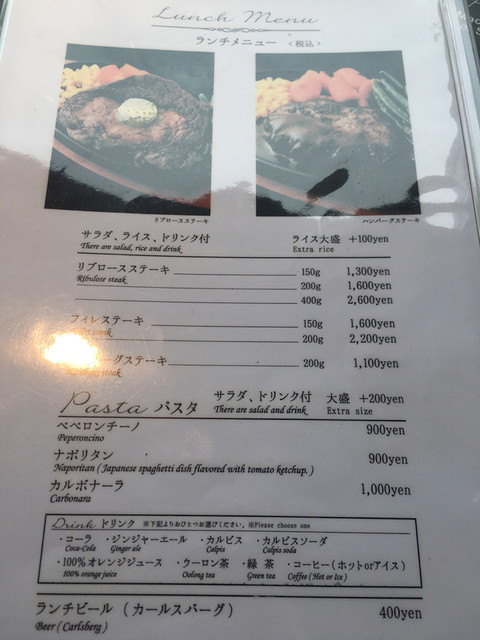 Lunch Menu
ランチメニュー <税込>
リブロースステーキ
ハンバーグステーキ
サラダ、ライス、ドリンク付
There are salad, rice and drink
ライス大盛 +100yen
Extra rice
リブロースステーキ 150g 1,300yen
Ribulose steak 200g 1,600yen
400g 2,600yen
フィレステーキ 150g 1,600yen
200g 2,200yen
ーグステーキ 200g 1,100yen
steak
Pasta パスタ サラダ、ドリンク付 大盛 +200yen
There are salad and drink Extra size
ペペロンチーノ 900yen
Peperoncino
ナポリタン 900yen
Naporitan ( Japanese spaghetti dish flavored with tomato ketchup. )
カルボナーラ 1,000yen
Carbonara
Drink ドリンク ※下記よりおひとつお選びください。※Please choose one
・コーラ ・ジンジャーエール ・カルピス ・カルピスソーダ
Coca-Cola Ginger ale Calpis Calpis soda
・100%オレンジジュース ・ウーロン茶 ・緑 茶 ・コーヒー(ホットorアイス)
100% orange juice Oolong tea Green tea Coffee ( Hot or Ice )
ランチビール (カールスバーグ) 400yen
Beer ( Carlsberg )